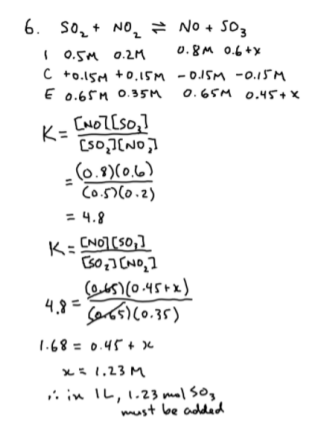 6. SO₂ + NO₂ ⇌ NO + SO₃
I 0.5M 0.2M 0.8M 0.6+x
C +0.15M +0.15M -0.15M -0.15M
E 0.65M 0.35M 0.65M 0.45+x
K = [NO][SO₃]
[SO₂][NO₂]
= (0.8)(0.6)
(0.5)(0.2)
= 4.8
K = [NO][SO₃]
[SO₂][NO₂]
4.8 = (0.65)(0.45+x)
(0.65)(0.35)
1.68 = 0.45 + x
x = 1.23 M
∴ in 1L, 1.23 mol SO₃
must be added